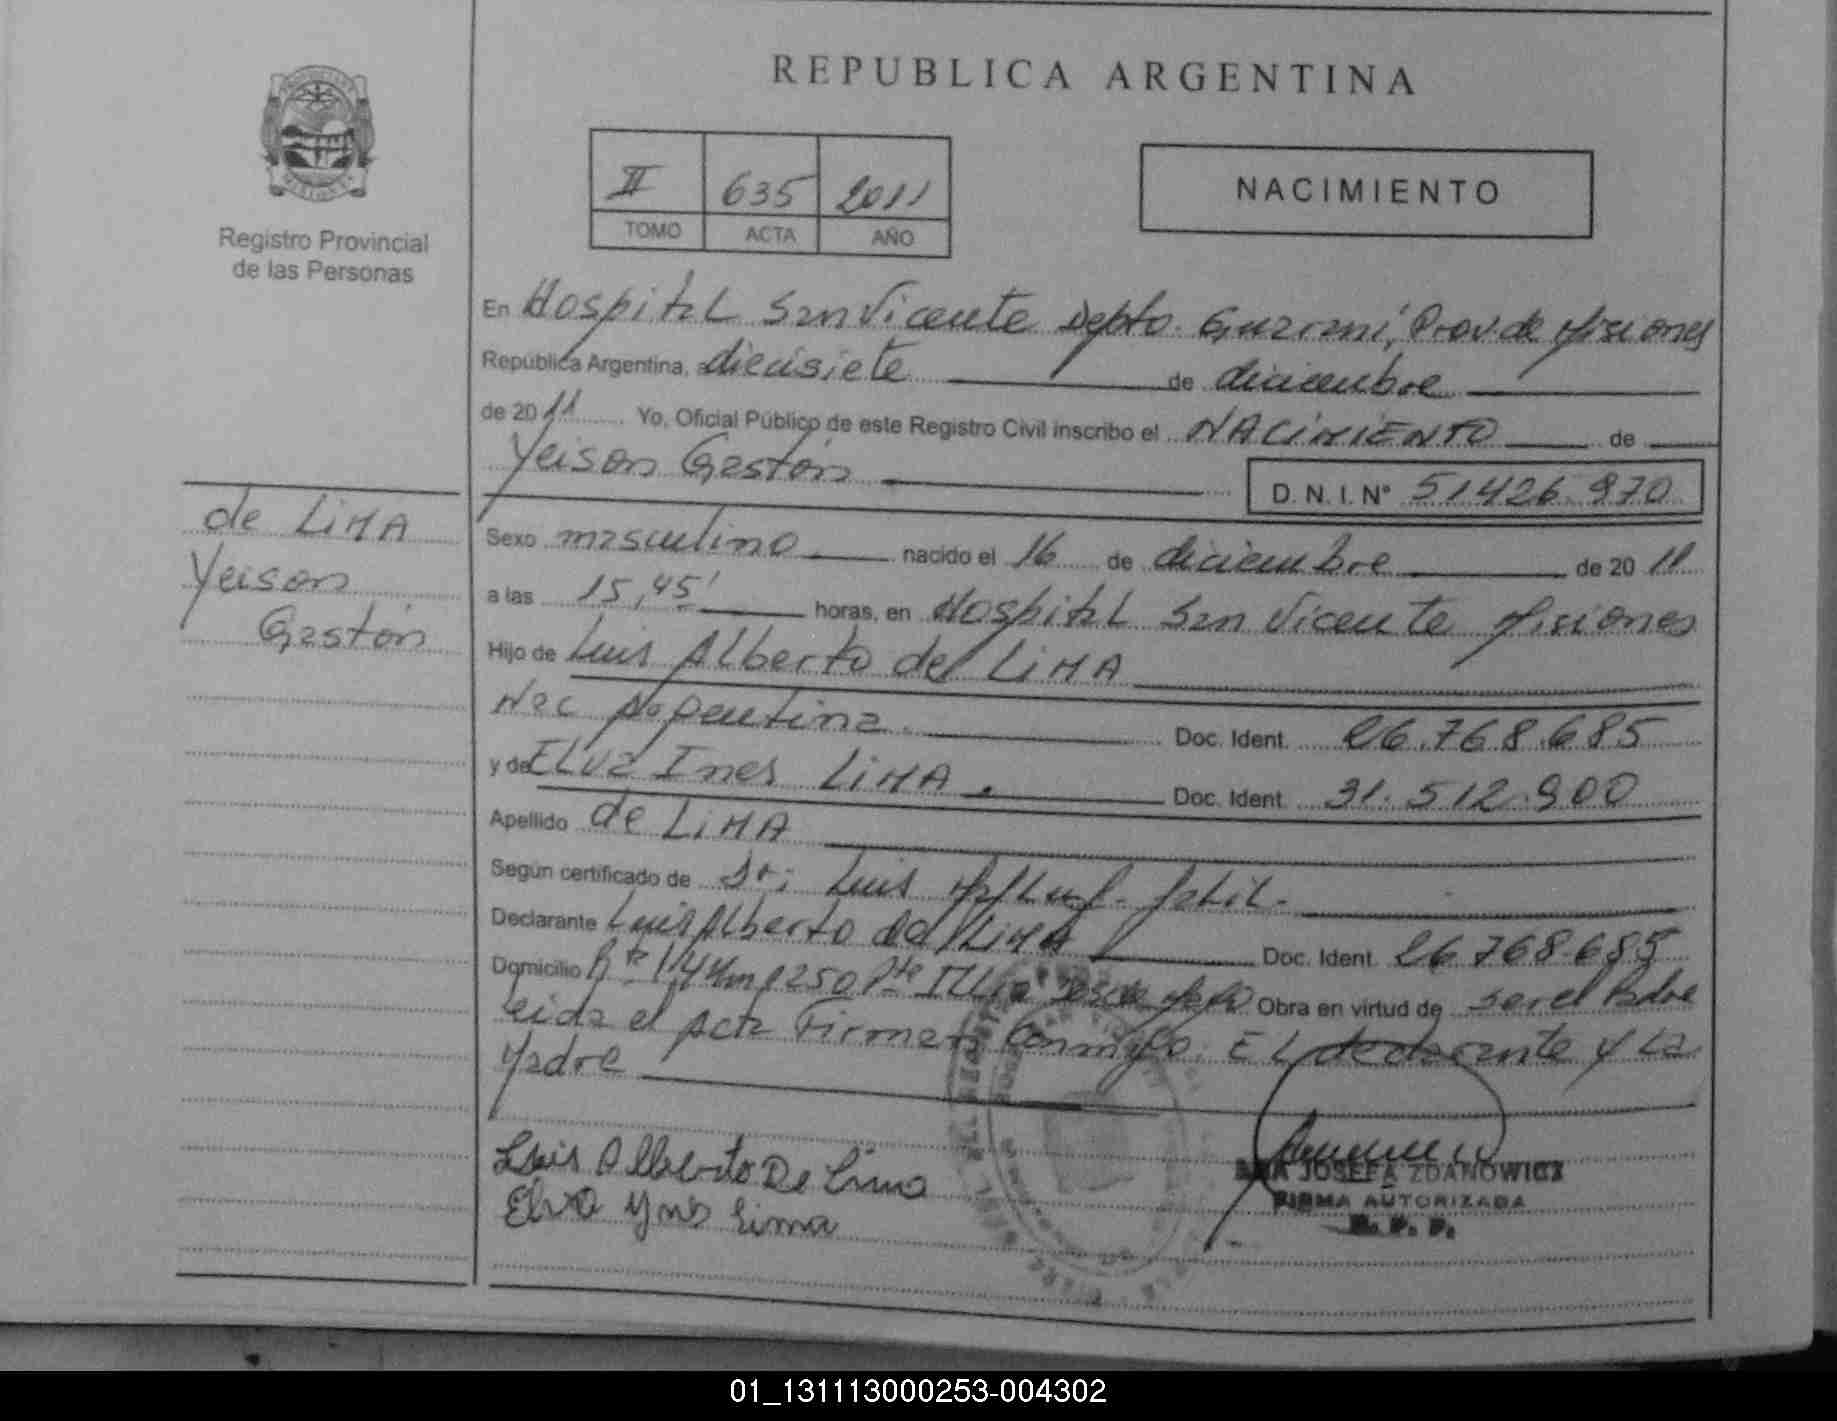 REPUBLICA ARGENTINA
II 635 2011
TOMO ACTA AÑO
NACIMIENTO
Registro Provincial
de las Personas
de LiMA
Yeison
Gastón
En Hospital San Vicente Depto. Guaraní, Prov. de Misiones
República Argentina, a diecisiete de diciembre
de 2011 Yo, Oficial Público de este Registro Civil inscribo el NACIMIENTO de
Yeison Gastón D.N.I.Nº 51426.970
Sexo masculino nacido el 16 de diciembre de 2011
a las 15,45' horas, en Hospital San Vicente Misiones
Hijo de Luis Alberto de LiMA
Nac Argentina Doc. Ident. 26.768.685
y de ELva Ines LiMA. Doc. Ident. 31.512.900
Apellido de LiMA
Según certificado de Dr: Luis
Declarante Luis Alberto de LiMA Doc. Ident. 26.768.685
Domicilio 1250 Obra en virtud de ser el Padre
Leida el Acta Firman Conmigo. EL declarante y La
Madre
Luis Alberto De Lima
Elva Ynes Lima
ANA JOSEFA ZDANOWICZ
FIRMA AUTORIZADA
R. P. P.
01_131113000253-004302